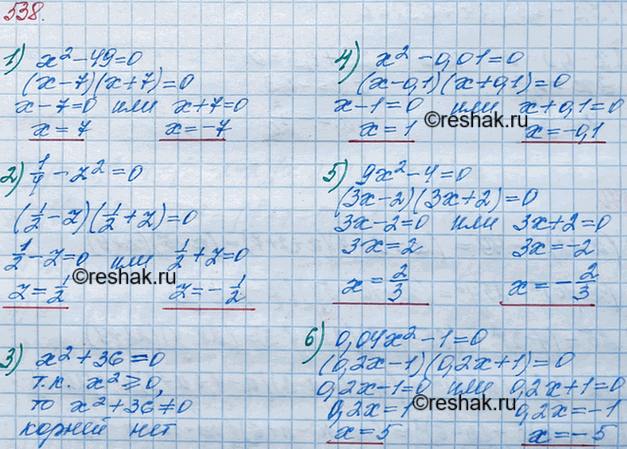 538.
1) x² - 49 = 0
(x-7)(x+7) = 0
x-7=0 или x+7=0
x = 7 x = -7
2) 1/4 - z² = 0
(1/2 - z)(1/2 + z) = 0
1/2 - z = 0 или 1/2 + z = 0
z = 1/2 z = -1/2
©reshak.ru
3) x² + 36 = 0
т.к. x² ≥ 0,
то x² + 36 ≠ 0
корней нет
4) x² - 0,01 = 0
(x-0,1)(x+0,1) = 0
x-1=0 или x+0,1=0
x = 1 x = -0,1
©reshak.ru
5) 9x² - 4 = 0
(3x-2)(3x+2) = 0
3x-2=0 или 3x+2=0
3x = 2 3x = -2
x = 2/3 x = -2/3
6) 0,04x² - 1 = 0
(0,2x-1)(0,2x+1) = 0
0,2x-1=0 или 0,2x+1=0
0,2x = 1 0,2x = -1
x = 5 x = -5
©reshak.ru